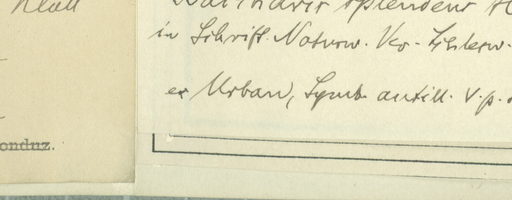 Klatt
splendens
in Schrift. Naturw. Ver.
ex Urban, Symb. antill. V. p.
onduz.